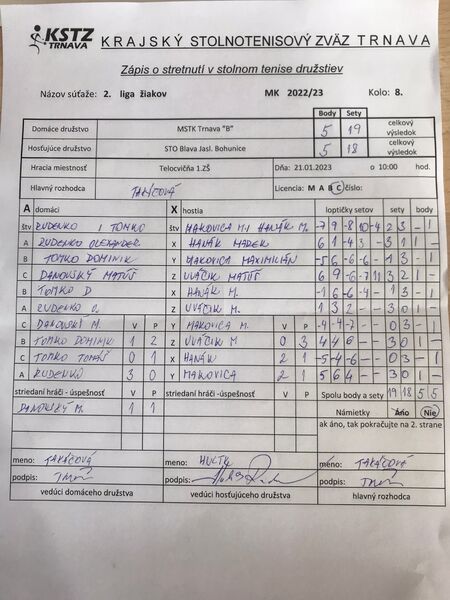 KSTZ TRNAVA
KRAJSKÝ STOLNOTENISOVÝ ZVÄZ TRNAVA
Zápis o stretnutí v stolnom tenise družstiev
Názov súťaže: 2. liga žiakov MK 2022/23 Kolo: 8.
Body Sety
Domáce družstvo MSTK Trnava "B" 5 19 celkový výsledok
Hosťujúce družstvo STO Blava Jasl. Bohunice 5 18 celkový výsledok
Hracia miestnosť Telocvičňa 1.ZŠ Dňa: 21.01.2023 o 10:00 hod.
Hlavný rozhodca TAKÁČOVÁ Licencia: M A B C číslo:
A domáci X hostia loptičky setov sety body
štv RUDENKO I TOMKO štv MAKOVICA M I HANÁK M. -7 9 -8 10 -4 2 3 - 1
A RUDENKO OLEXANDER X HANÁK MAREK 6 1 -4 3 - 3 1 1 -
B TOMKO DOMINIK Y MAKOVICA MAXIMILIÁN -5 6 -6 -6 - 1 3 - 1
C DANOVSKÝ MATÚŠ Z UVÁČIK MATÚŠ 6 9 -6 -7 11 3 2 1 -
B TOMKO D X HANÁK M. -1 6 -6 -4 - 1 3 - 1
A RUDENKO O. Z UVÁČIK M. 1 3 2 - - 3 0 1 -
C DANOVSKÍ M. V P Y MAKOVICA M. V P -4 -4 -7 - - 0 3 - 1
B TOMKO DOMINIK 1 2 Z UVÁČIK M 0 3 4 4 6 - - 3 0 1 -
C TOMKO TOMÁŠ 0 1 X HANÁK 2 1 -5 -4 -6 - - 0 3 - 1
A RUDENKO 3 0 Y MAKOVICA 2 1 5 6 4 - - 3 0 1 -
striedaní hráči - úspešnosť V P striedaní hráči - úspešnosť V P Spolu body a sety 19 18 5 5
DANOVSKÝ M. 1 1 Námietky Áno Nie
ak áno, tak pokračujte na 2. strane
meno: TAKÁČOVÁ meno: meno: TAKÁČOVÁ
podpis: podpis: podpis:
vedúci domáceho družstva vedúci hosťujúceho družstva hlavný rozhodca